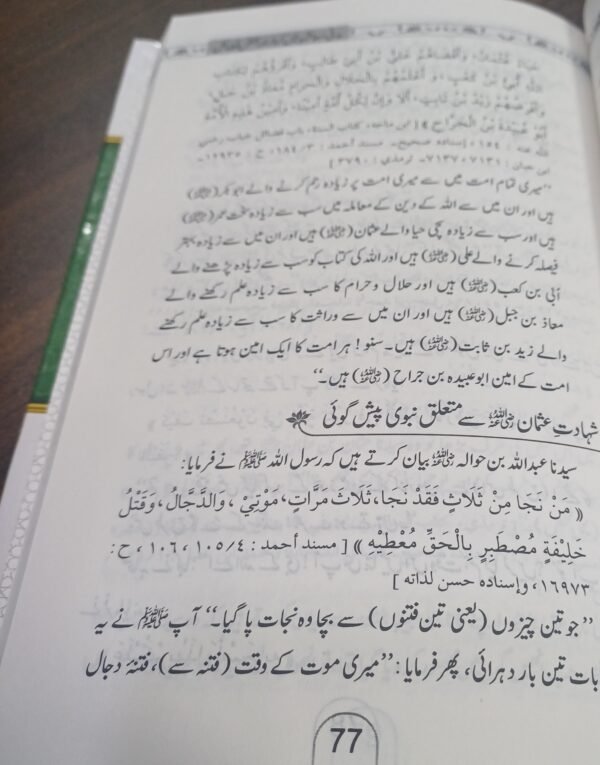 حَيَاءً عُثْمَانُ، وَأَقْضَاهُمْ عَلِيُّ بْنُ أَبِي طَالِبٍ، وَأَقْرَؤُهُمْ لِكِتَابِ
اللهِ أُبَيُّ بْنُ كَعْبٍ، وَأَعْلَمُهُمْ بِالْحَلَالِ وَالْحَرَامِ مُعَاذُ بْنُ جَبَلٍ
وَأَفْرَضُهُمْ زَيْدُ بْنُ ثَابِتٍ، أَلَا وَإِنَّ لِكُلِّ أُمَّةٍ أَمِينًا، وَأَمِينُ هٰذِهِ الْأُمَّةِ
أَبُو عُبَيْدَةَ بْنُ الْجَرَّاحِ ﴾ [ ابن ماجه، كتاب السنة، باب فضائل خباب رضي
الله عنه : ١٥٤، إسناده صحيح۔ مسند أحمد : ٣/ ١٨٤، ح : ١٢٩٣٥۔
ابن حبان : ٧١٣١، ٧١٣٧۔ ترمذي : ٣٧٩٠ ]
”میری تمام امت میں سے میری امت پر زیادہ رحم کرنے والے ابوبکر (رضی اللہ عنہ)
ہیں اور ان میں سے اللہ کے دین کے معاملہ میں سب سے زیادہ سخت عمر (رضی اللہ عنہ)
ہیں اور سب سے زیادہ سچی حیا والے عثمان (رضی اللہ عنہ) ہیں اور ان میں سے زیادہ بہتر
فیصلہ کرنے والے علی (رضی اللہ عنہ) ہیں اور اللہ کی کتاب کو سب سے زیادہ پڑھنے والے
اُبی بن کعب (رضی اللہ عنہ) ہیں اور حلال و حرام کا سب سے زیادہ علم رکھنے والے
معاذ بن جبل (رضی اللہ عنہ) ہیں اور ان میں سے وراثت کا سب سے زیادہ علم رکھنے
والے زید بن ثابت (رضی اللہ عنہ) ہیں۔ سنو! ہر امت کا ایک امین ہوتا ہے اور اس
امت کے امین ابوعبیدہ بن جراح (رضی اللہ عنہ) ہیں۔“
شہادتِ عثمان رضی اللہ عنہ سے متعلق نبوی پیش گوئی
سیدنا عبداللہ بن حوالہ رضی اللہ عنہ بیان کرتے ہیں کہ رسول اللہ ﷺ نے فرمایا:
﴿ مَنْ نَجَا مِنْ ثَلَاثٍ فَقَدْ نَجَا، ثَلَاثَ مَرَّاتٍ، مَوْتِيْ، وَالدَّجَّالُ، وَقَتْلُ
خَلِيْفَةٍ مُصْطَبِرٍ بِالْحَقِّ مُعْطِيْهِ ﴾ [ مسند أحمد : ٤/ ١٠٥، ١٠٦، ح :
١٦٩٧٣، وإسناده حسن لذاته ]
”جو تین چیزوں (یعنی تین فتنوں) سے بچا وہ نجات پا گیا۔“ آپ ﷺ نے یہ
بات تین بار دہرائی، پھر فرمایا : ”میری موت کے وقت (فتنہ سے)، فتنۂ دجال
77